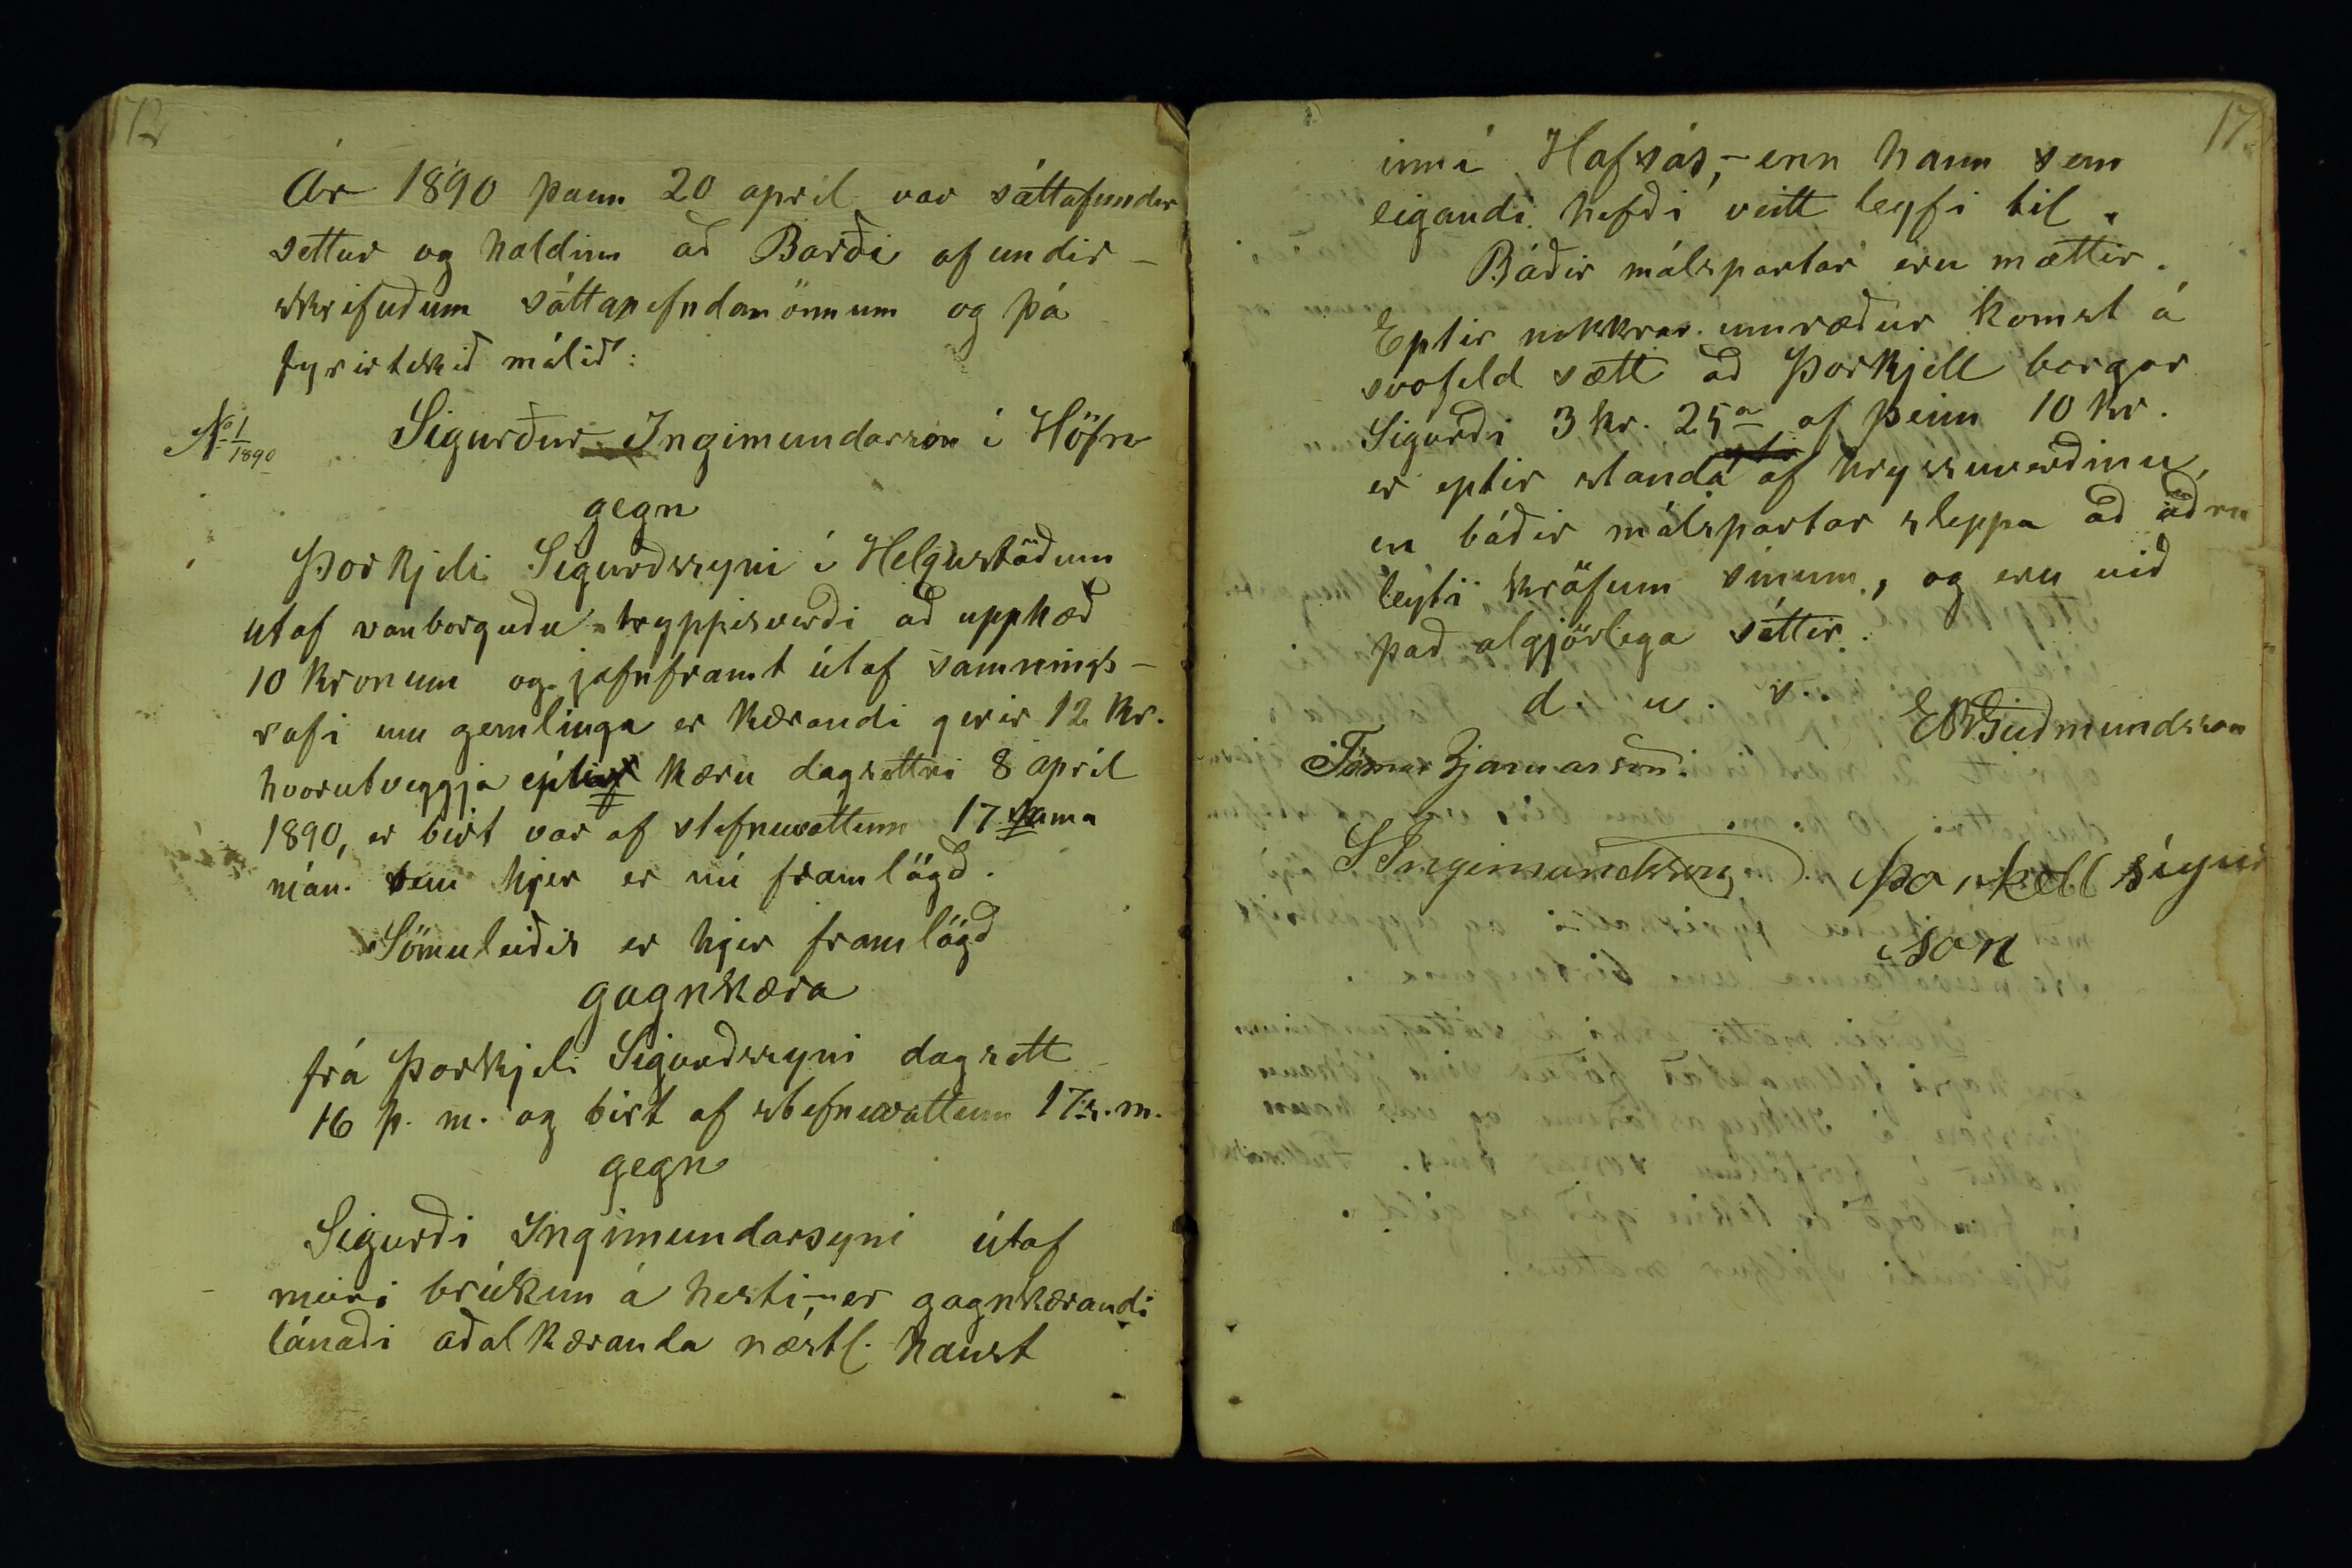 172
Ár 1890 þann 20 april var sáttafundur
settur og haldinn að Barði af undir-
skrifuðum sáttanefndamönnum og þá
fyrirtekið málið:
No 1/1890 Sigurður Ingimundarson í Höfn
gegn
Þorkjeli Sigurðssyni í Helgustöðum
útaf vanborguðu tryppisverði að upphæð
10 krónum og jafnframt útaf samnings-
rofi um gemlinga er kærandi gerir 12 kr.
hvorutveggja eptir kæru dagsettri 8 apríl
1890, er birt var af stefnuvottunum 17 sama
mán. sem hjer er nú framlögð.
Sömuleiðis er hjer framlögð
gagnkæra
frá Þorkjeli Sigurðssyni dagsett
16 þ. m. og birt af stefnuvottum 17 s. m.
gegn
Sigurði Ingimundarsyni útaf
meiri brúkun á hesti, - er gagnkærandi
lánaði aðalkæranda næstl. haust
17
inní Hofsós, - enn hann sem
eigandi hefði veitt leyfi til.
Báðir málspartar eru mættir.
Eptir nokkrar umræður komst á
svofeld sætt að Þorkjell borgar
Sigurði 3 kr. 25 a af þeim 10 kr.
er eptir standa af hryssuverðinu,
en báðir málspartar sleppa að öðru
leyti kröfum sínum, og eru við
það algjörlega sáttir.
d. u. s.
EBGuðmundsson
Tómas Bjarnarson.
SIngimundsson Þorkell Sigurð
son